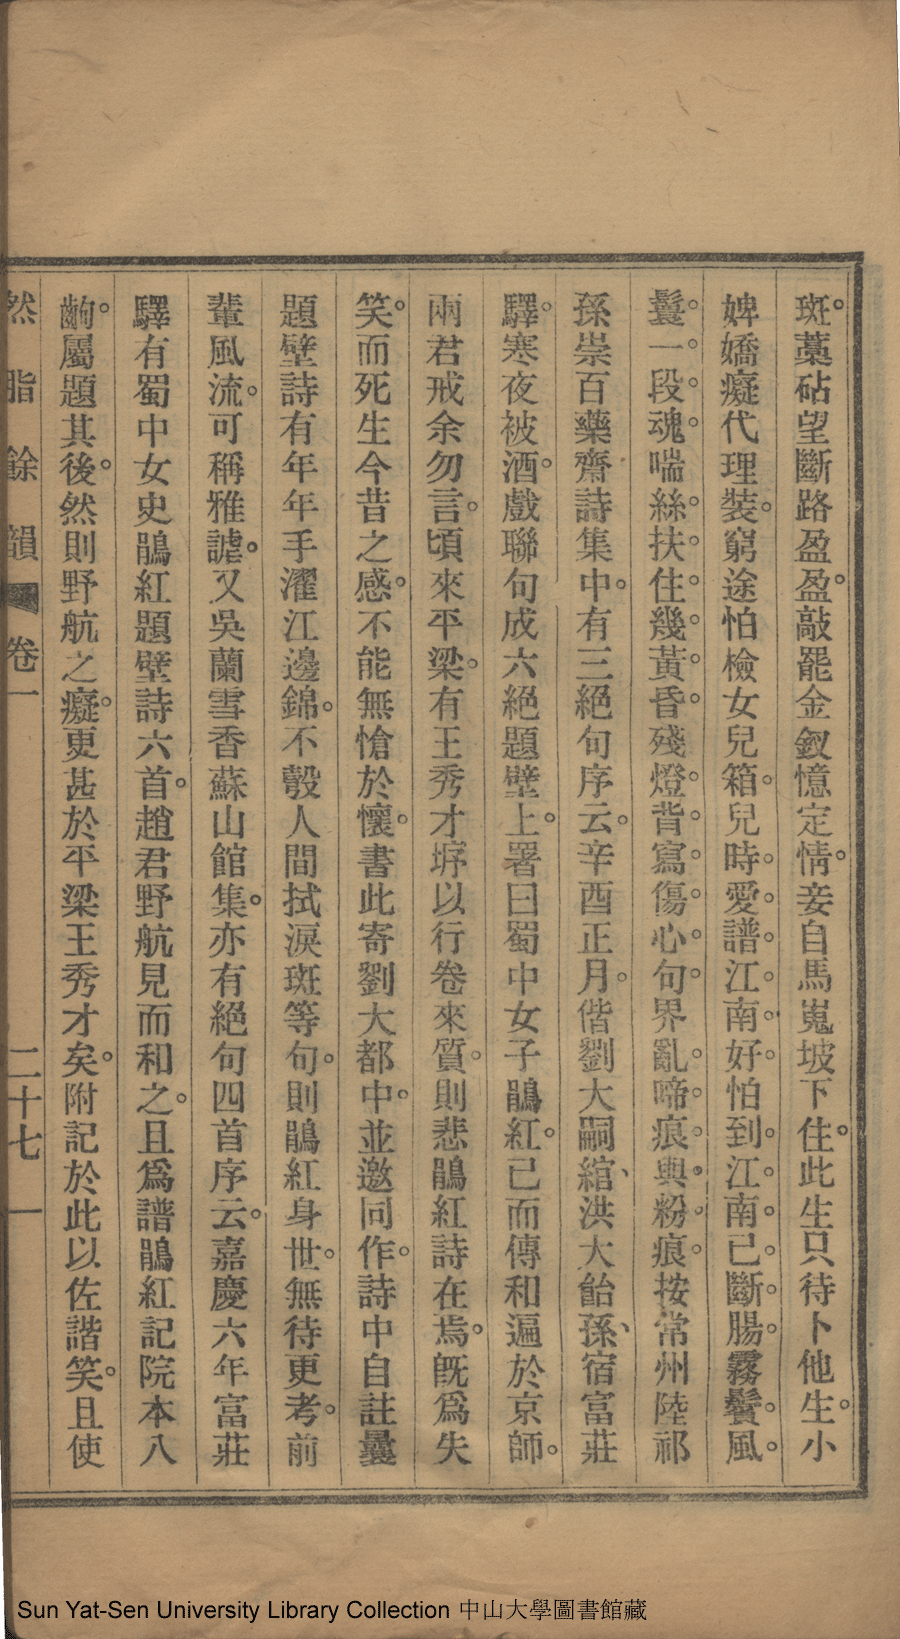 斑。藁砧望斷路盈盈。敲罷金釵憶定情。妾自馬嵬坡下住。此生只待卜他生。小
婢嬌癡代理裝。窮途怕檢女兒箱。兒時。愛。譜。江。南。好。怕到。江。南。已。斷。腸。霧鬢。風。
鬟。一。段。魂。喘絲。扶。住。幾。黃。昏。殘燈。背。寫。傷。心。句。界亂。啼。痕。與。粉。痕。按常州陸祁
孫崇百藥齋詩集中。有三絕句序云。辛酉正月。偕劉大嗣綰、洪大飴孫、宿富莊
驛。寒夜被酒。戲聯句成六絕題壁上。署曰蜀中女子鵑紅。已而傳和遍於京師。
兩君戒余勿言。頃來平梁。有王秀才垿以行卷來質。則悲鵑紅詩在焉。旣爲失
笑。而死生今昔之感。不能無愴於懷。書此寄劉大都中。並邀同作。詩中自註曩
題壁詩有年年手濯江邊錦。不彀人間拭淚斑等句。則鵑紅身世。無待更考。前
輩風流。可稱雅謔。又吳蘭雪香蘇山館集。亦有絕句四首序云。嘉慶六年富莊
驛有蜀中女史鵑紅題壁詩六首。趙君野航見而和之。且爲譜鵑紅記院本八
齣。屬題其後。然則野航之癡。更甚於平梁王秀才矣。附記於此以佐諧笑。且使
然脂餘韻 卷一 二十七
Sun Yat-Sen University Library Collection 中山大學圖書館藏